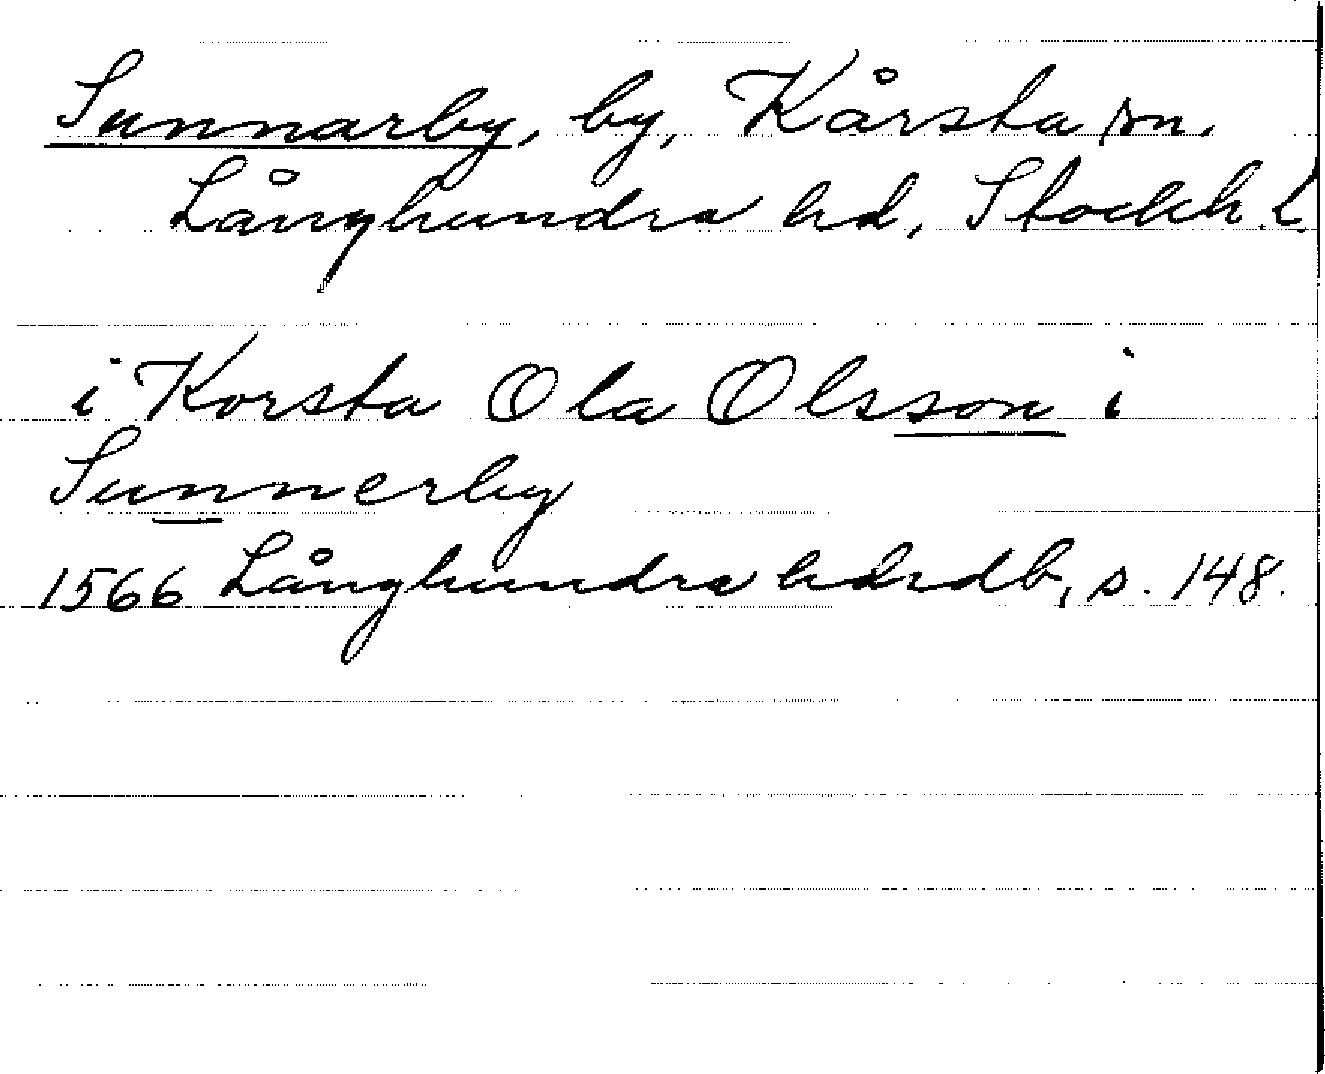 Sunnarby, by, Kårsta sn.
Långhundra hd, Stockh. l.
i Korsta Ola Olsson i
Sunnerby
1566 Långhundra hdrdb, s. 148.